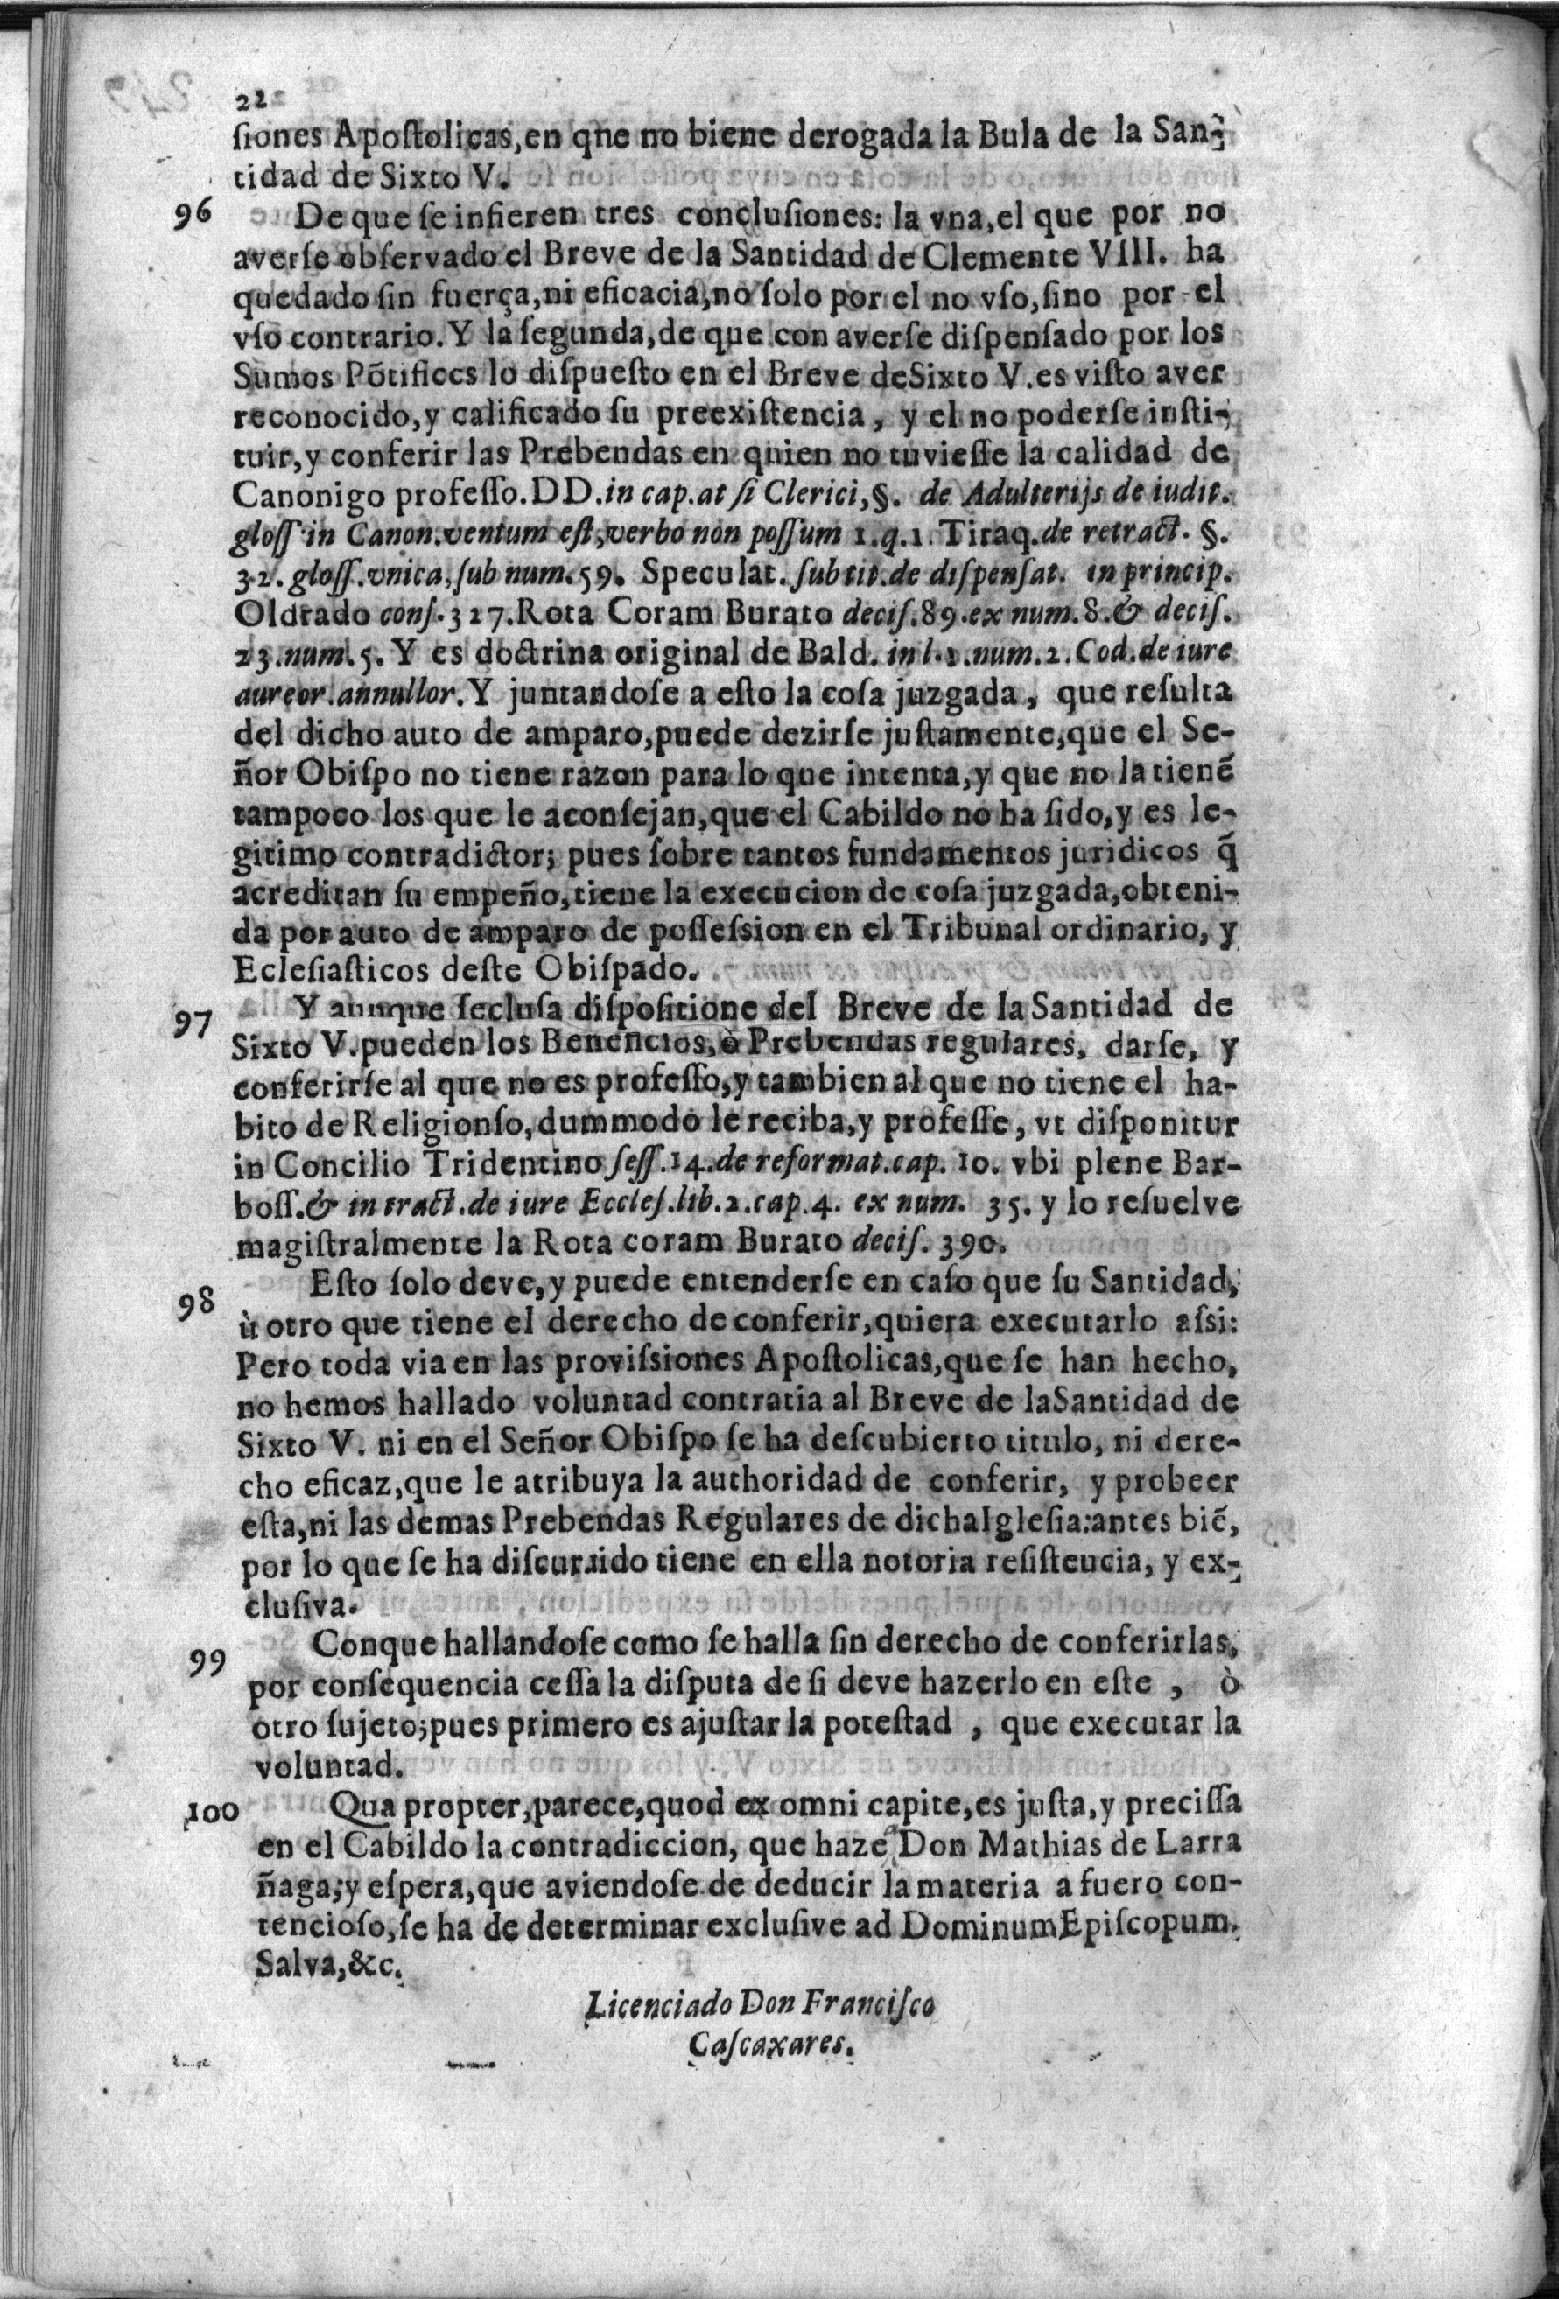 22
siones Apostolicas, en qne no biene derogada la Bula de la San-
tidad de Sixto V.
96 De que se infieren tres conclusiones: la vna, el que por no
averse observado el Breve de la Santidad de Clemente VIII. ha
quedado sin fuerça, ni eficacia, no solo por el no vso, sino por el
vso contrario. Y la segunda, de que con averse dispensado por los
Sumos Põtifices lo dispuesto en el Breve deSixto V. es visto aver
reconocido, y calificado su preexistencia, y el no poderse insti-
tuir, y conferir las Prebendas en quien no tuviesse la calidad de
Canonigo professo. DD. in cap. at si Clerici, §. de Adulterijs de iudit.
gloss in Canon. ventum est, verbo non possum 1. q. 1. Tiraq. de retract. §.
32. gloss. vnica, sub num. 59. Speculat. sub tit. de dispensat. in princip.
Oldrado cons. 327. Rota Coram Burato decis. 89. ex num. 8. & decis.
23. num. 5. Y es doctrina original de Bald. in l. 1. num. 2. Cod. de iure
aureor. annullor. Y juntandose a esto la cosa juzgada, que resulta
del dicho auto de amparo, puede dezirse justamente, que el Se-
ñor Obispo no tiene razon para lo que intenta, y que no la tienẽ
tampoco los que le aconsejan, que el Cabildo no ha sido, y es le-
gitimo contradictor; pues sobre tantos fundamentos juridicos q̃
acreditan su empeño, tiene la execucion de cosa juzgada, obteni-
da por auto de amparo de possession en el Tribunal ordinario, y
Eclesiasticos deste Obispado.
97 Y aunque seclusa dispositione del Breve de la Santidad de
Sixto V. pueden los Beneficios, ò Prebendas regulares, darse, y
conferirse al que no es professo, y tambien al que no tiene el ha-
bito de Religionso, dummodo le reciba, y professe, vt disponitur
in Concilio Tridentino sess. 14. de reformat. cap. 10. vbi plene Bar-
boss. & in tract. de iure Eccles. lib. 2. cap. 4. ex num. 35. y lo resuelve
magistralmente la Rota coram Burato decis. 390.
98 Esto solo deve, y puede entenderse en caso que su Santidad,
ù otro que tiene el derecho de conferir, quiera executarlo assi:
Pero toda via en las provissiones Apostolicas, que se han hecho,
no hemos hallado voluntad contratia al Breve de laSantidad de
Sixto V. ni en el Señor Obispo se ha descubierto titulo, ni dere-
cho eficaz, que le atribuya la authoridad de conferir, y probeer
esta, ni las demas Prebendas Regulares de dichaIglesia: antes biẽ,
por lo que se ha discurrido tiene en ella notoria resisteucia, y ex-
clusiva.
99 Conque hallandose como se halla sin derecho de conferirlas,
por consequencia cessa la disputa de si deve hazerlo en este, ò
otro sujeto; pues primero es ajustar la potestad, que executar la
voluntad.
100 Qua propter, parece, quod ex omni capite, es justa, y precissa
en el Cabildo la contradiccion, que haze a Don Mathias de Larra
ñaga; y espera, que aviendose de deducir la materia a fuero con-
tencioso, se ha de determinar exclusive ad DominumEpiscopum.
Salva, &c.
Licenciado Don Francisco
Cascaxares.